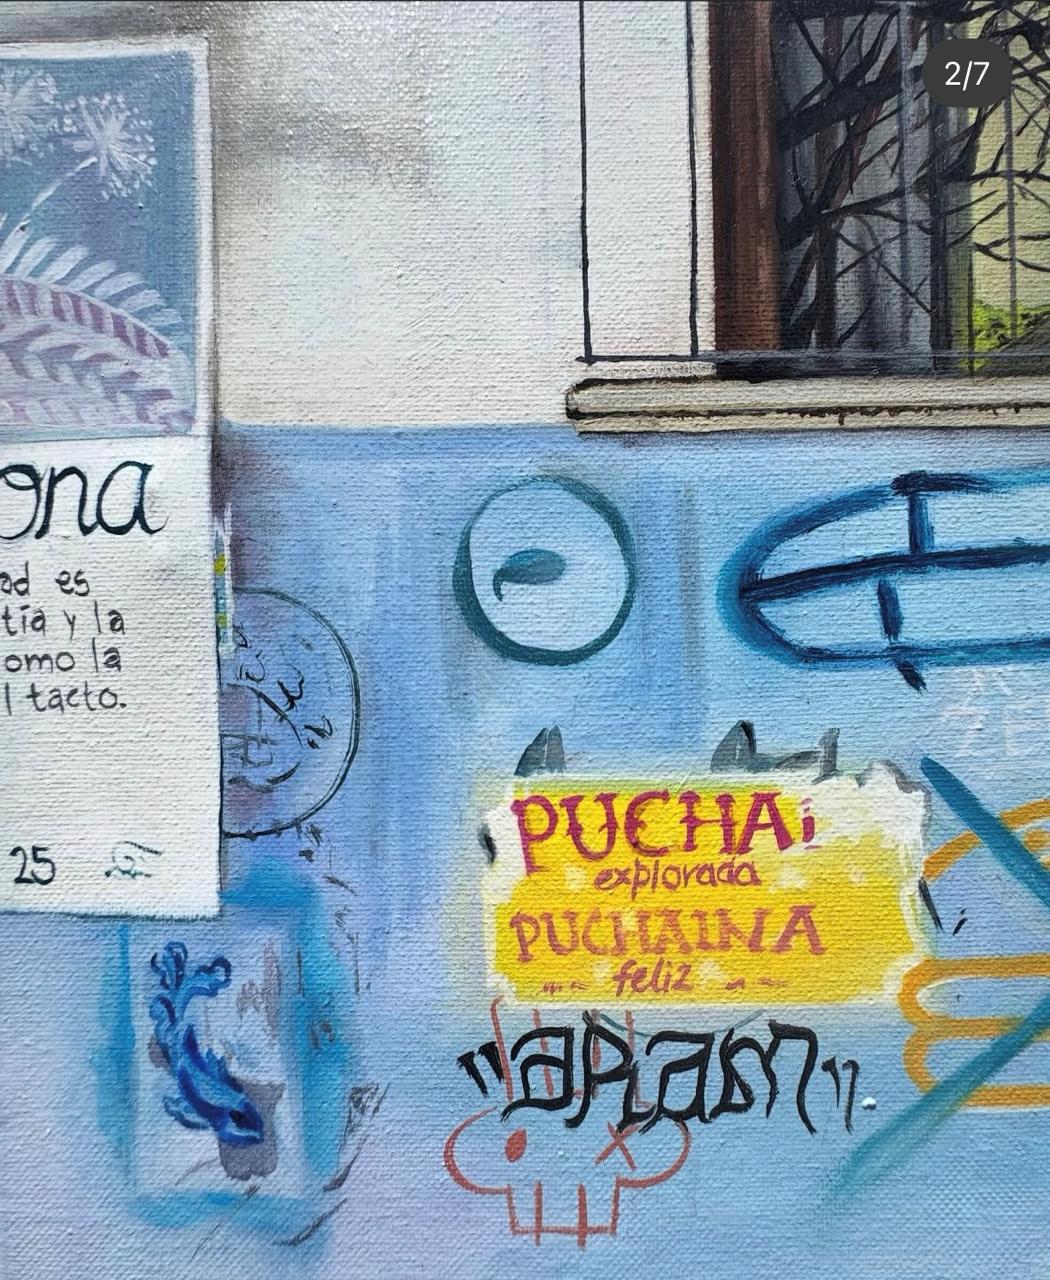 2/7
ona
ad es
tía y la
omo la
l tacto.
25
PUCHAi
explorada
PUCHAINA
feliz
"aRam".